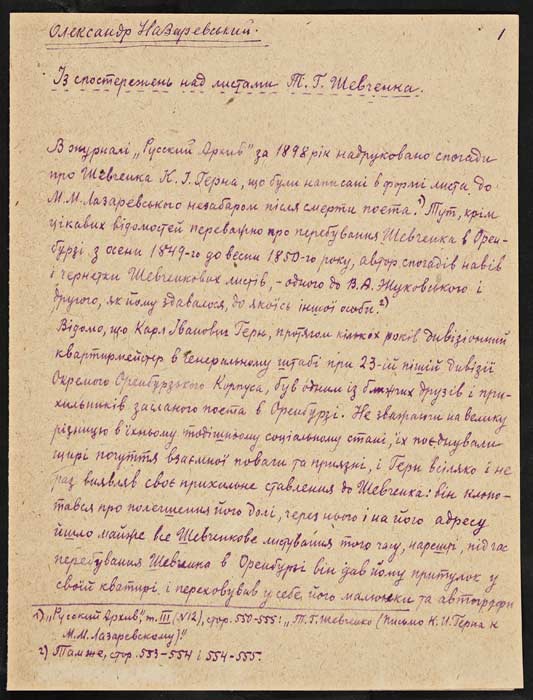 Олександр Назаревський.
1
Із спостережень над листами Т. Г. Шевченка.
В журналі „Русский Архив" за 1898 рік надруковано спогади
про Шевченка К. І. Герна, що були написані в формі листа до
М. М. Лазаревського незабаром після смерти поета.¹) Тут, крім
цікавих відомостей переважно про перебування Шевченка в Орен-
бурзі з осени 1849-го до весни 1850-го року, автор спогадів навів
і чернетки Шевченкових листів, - одного до В. А. Жуковського і
другого, як йому здавалося, до якоїсь іншої особи.²)
Відомо, що Карл Іванович Герн, протягом кількох років дивізіонний
квартирмейстер в Генеральному штабі при 23-ій пішій дивізії
Окремого Оренбурзького Корпуса, був одним із близких друзів і при-
хильників засланого поета в Оренбурзі. Не зважаючи на велику
різницю в їхньому тодішньому соціальному стані, їх поєднували
щирі почуття взаємної поваги та приязні, і Герн всіляко і не
раз виявляв своє прихильне ставлення до Шевченка: він клопо-
тався про полегшення його долі, через нього і на його адресу
йшло майже все Шевченкове листування того часу, нарешті, під час
перебування Шевченка в Оренбурзі він дав йому притулок у
своїй кватирі і переховував у себе його малюнки та автографи
1) „Русский Архив", т. III (№12), стор. 550-555: „Т. Г. Шевченко (Письмо К. И. Герна к
М. М. Лазаревскому)"
2) Там же, стор. 553-554 і 554-555.